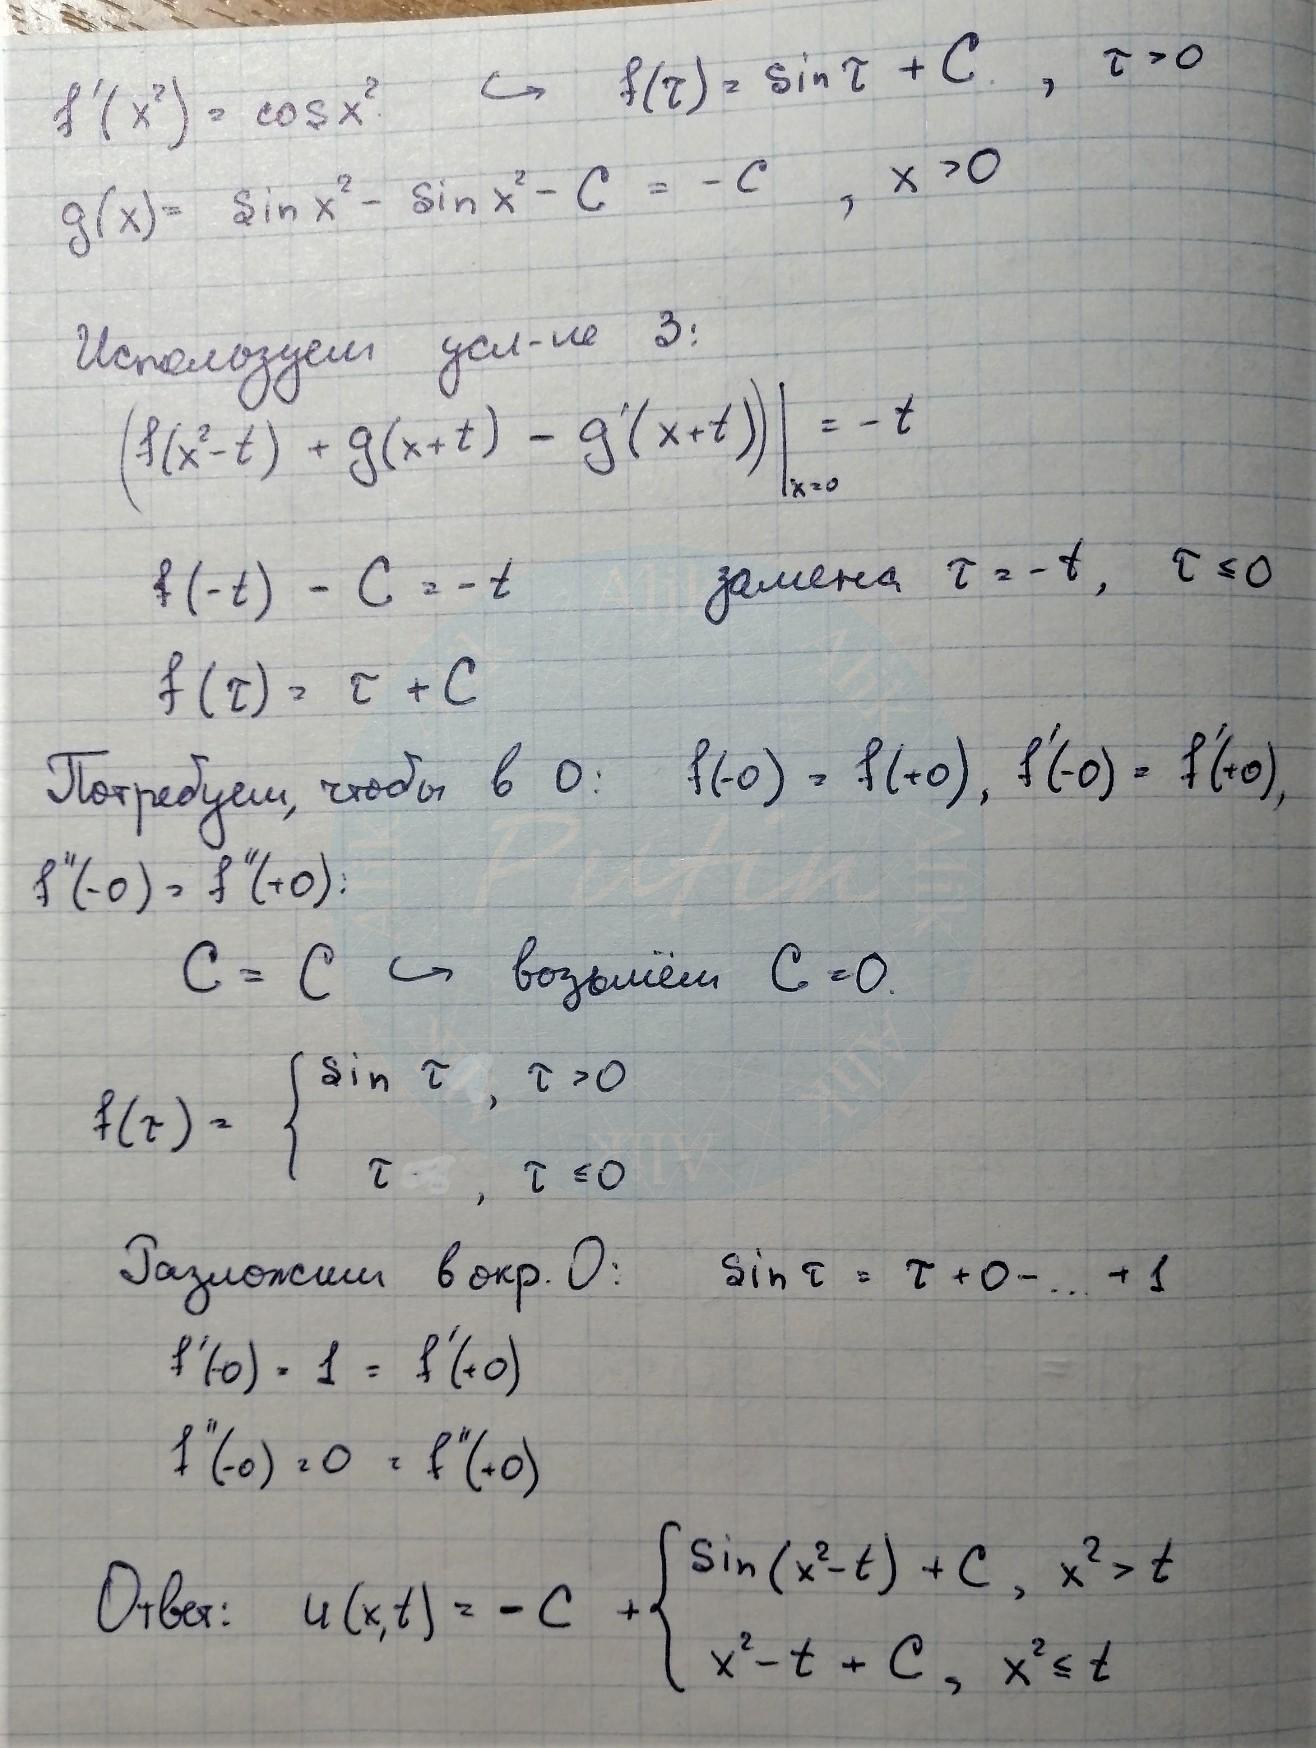 f'(x²) = cos x² ↪ f(τ) = sin τ + C , τ > 0
g(x) = sin x² - sin x² - C = -C , x > 0
Используем усл-ие 3:
(f(x²-t) + g(x+t) - g'(x+t))|ₓ₌₀ = -t
f(-t) - C = -t замена τ = -t, τ ≤ 0
f(τ) = τ + C
Потребуем, чтобы в 0: f(-0) = f(+0), f'(-0) = f'(+0),
f''(-0) = f''(+0):
C = C ↪ возьмём C = 0.
f(τ) = { sin τ , τ > 0
τ , τ ≤ 0
Разложим в окр. 0: sin τ = τ + 0 - ... + 1
f'(-0) = 1 = f'(+0)
f''(-0) = 0 = f''(+0)
Ответ: u(x,t) = -C + { sin(x²-t) + C, x² > t
x² - t + C, x² ≤ t
Putin
Alik